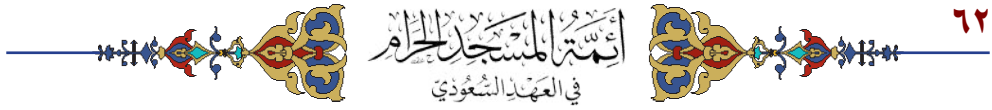 ٦٢
أَئِمَّةُ المَسْجِدِ الحَرَامِ
فِي العَهْدِ السُّعُودِيّ